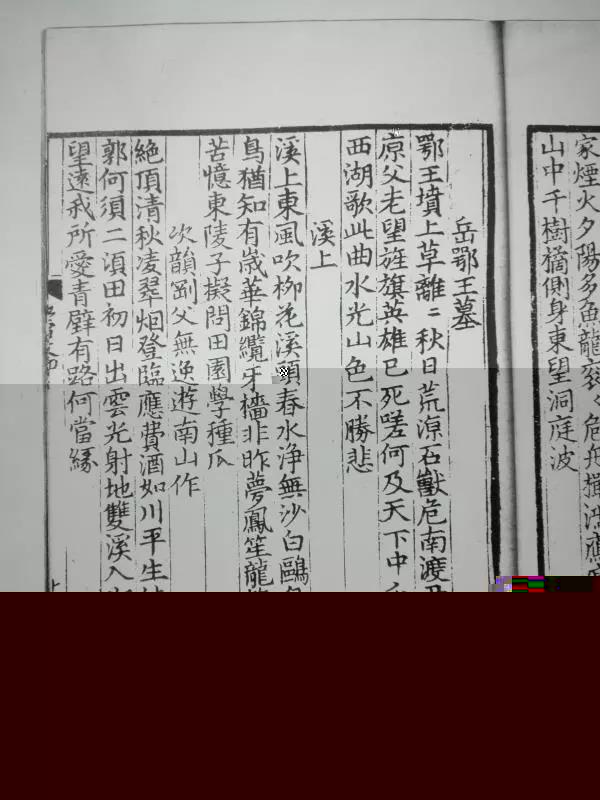 家煙火夕陽多魚龍袞々危舟橫
山中千樹橘側身東望洞庭波
岳鄂王墓
鄂王墳上草離〻秋日荒涼石獸危南渡
原父老望旌旗英雄已死嗟何及天下中
西湖歌此曲水光山色不勝悲
溪上
溪上東風吹柳花溪頭春水浄無沙白鷗
鳥猶知有歲華錦纜牙檣非昨夢鳳笙龍
苦憶東陵子擬問田園學種瓜
次韻剛父無逸遊南山作
絶頂清秋凌翠烟登臨應費酒如川平生
郭何須二頃田初日出雲光射地雙溪入
望遠我所愛青壁有路何當緣